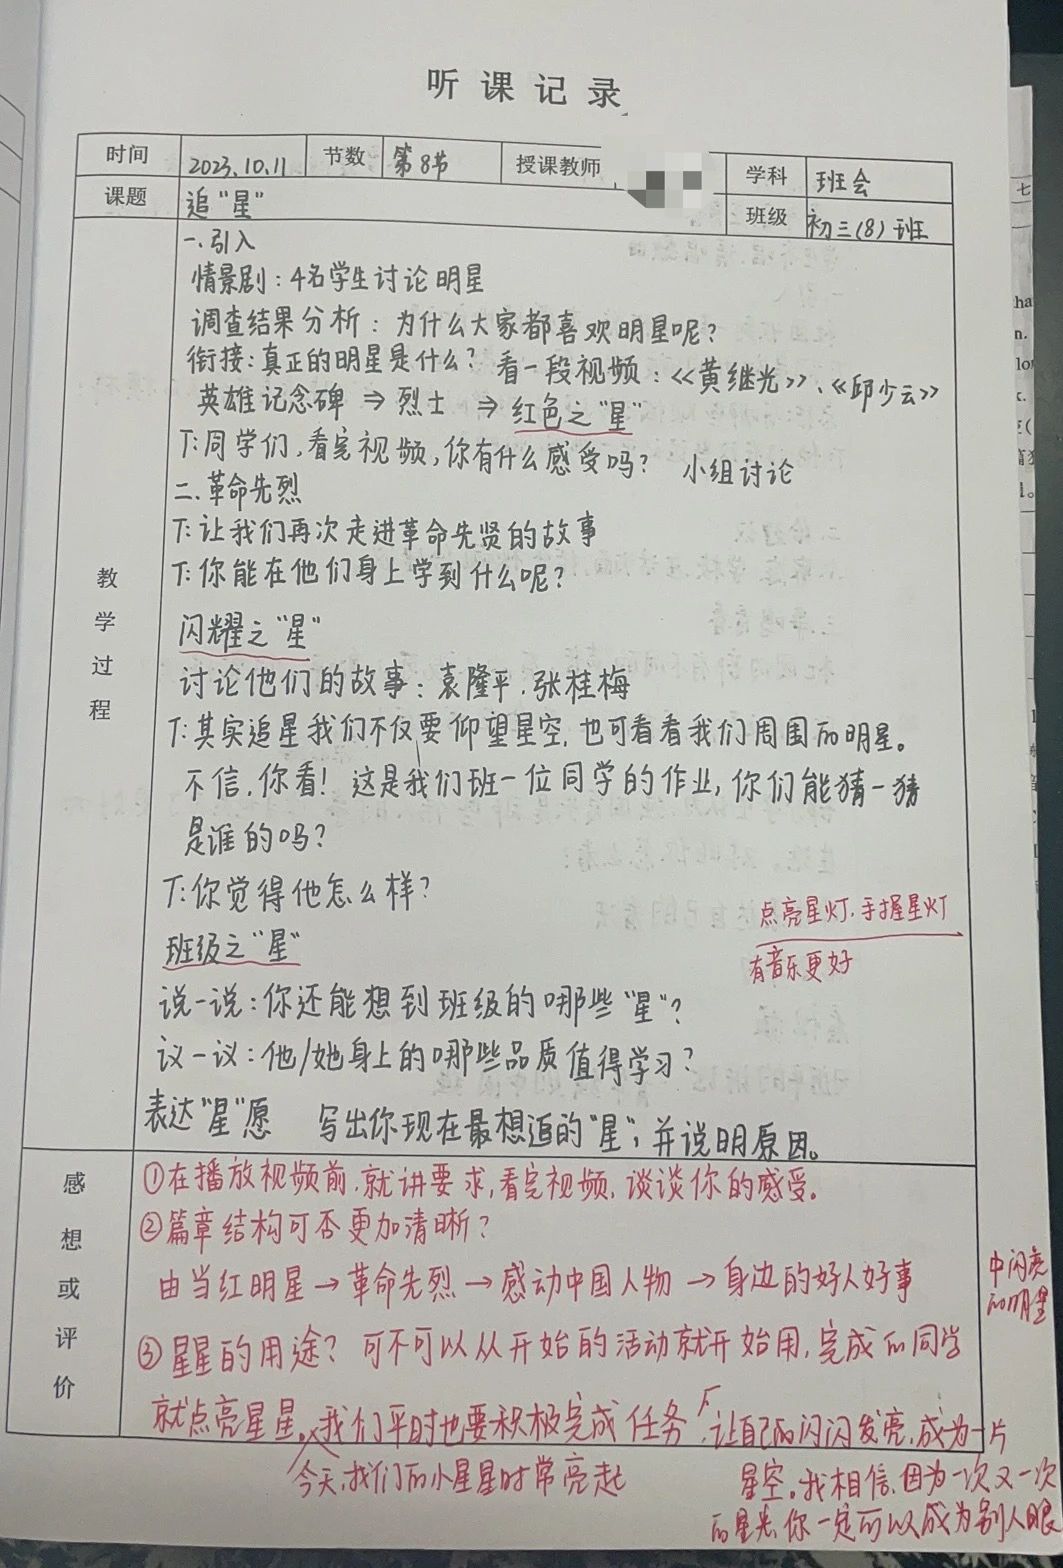 听课记录
时间 2023.10.11 节数 第8节 授课教师 学科 班会
课题 追“星” 班级 初三(8)班
教学过程
一、引入
情景剧：4名学生讨论明星
调查结果分析：为什么大家都喜欢明星呢？
衔接：真正的明星是什么？ 看一段视频：《黄继光》、《邱少云》
英雄记念碑 ⇒ 烈士 ⇒ 红色之“星”
T：同学们，看完视频，你有什么感受吗？ 小组讨论
二、革命先烈
T：让我们再次走进革命先贤的故事
T：你能在他们身上学到什么呢？
闪耀之“星”
讨论他们的故事：袁隆平、张桂梅
T：其实追星我们不仅要仰望星空，也可看看我们周围的明星。
不信，你看！这是我们班一位同学的作业，你们能猜一猜
是谁的吗？
T：你觉得他怎么样？
点亮星灯，手握星灯
班级之“星”
有音乐更好
说一说：你还能想到班级的哪些“星”？
议一议：他/她身上的哪些品质值得学习？
表达“星”愿 写出你现在最想追的“星”，并说明原因。
感想或评价
①在播放视频前，就讲要求，看完视频，谈谈你的感受。
②篇章结构可否更加清晰？
由当红明星→革命先烈→感动中国人物→身边的好人好事
③星星的用途？可不可以从开始的活动就开始用，完成的同学
就点亮星星。我们平时也要积极完成任务，让自己的闪闪发亮，成为一片
今天，我们的小星星时常亮起
星空。我相信，因为一次又一次
的星光，你一定可以成为别人眼
中闪亮
的明星